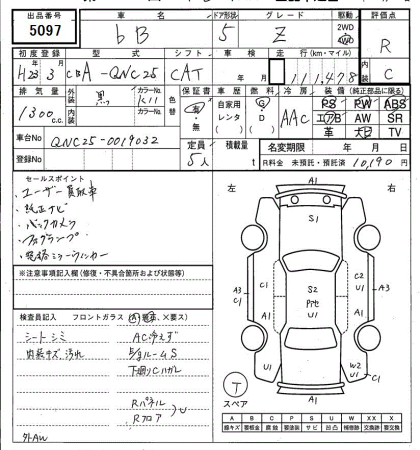 出品番号 車名 ドア形状 グレード 駆動 評価点
5097 bB 5 Z 2WD 4WD R
初度登録 型式 シフト 車検 走行(km・マイル) 内装
H23 3 CBA-QNC25 CAT 年 月 111,478 C
排気量 外装 黒 カラーNo. K11 色替 保証書 車歴 燃料 冷房 装備(純正部品に限る)
1300 c.c. 内装 カラーNo. 有・無 自家用 レンタ G D AAC PS PW ABS
エアB AW SR
革 TV
車台No QNC25-0019032 定員 積載量 名変期限 年 月 日
登録No 5人 t R料金 未預託・預託済 10,190 円
セールスポイント
・ユーザー買取車
・純正ナビ
・バックカメラ
・フォグランプ
・電格ミラーウィンカー
※注意事項記入欄(修復・不具合箇所および状態等)
検査員記入 フロントガラス (A,飛石,×要ス)
シートシミ ACキえず
内装キズ汚れ ルームS
下廻りCハガレ
Rパネル
Rフロア U
外AW
左 右
A1
S1
A3 C1 C1 S2 Pｱｾ U1 C2 U1 A3
U1 W2 U1 C1
A1
T
スペア
A B C P S U W X XX
線キズ 腐蝕 要塗装 サビ 凹凸 補修跡 要交換 交換済